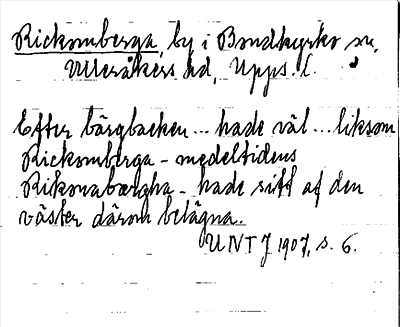 Rickomberga, by i Bondkyrko sn,
Ulleråkers hd, Upps. l.
Efter bärgbacken... hade väl... liksom
Rickomberga - medeltidens
Rikonabærgha - hade sitt af den
väster därom belägna..
UNT J 1907, s. 6.